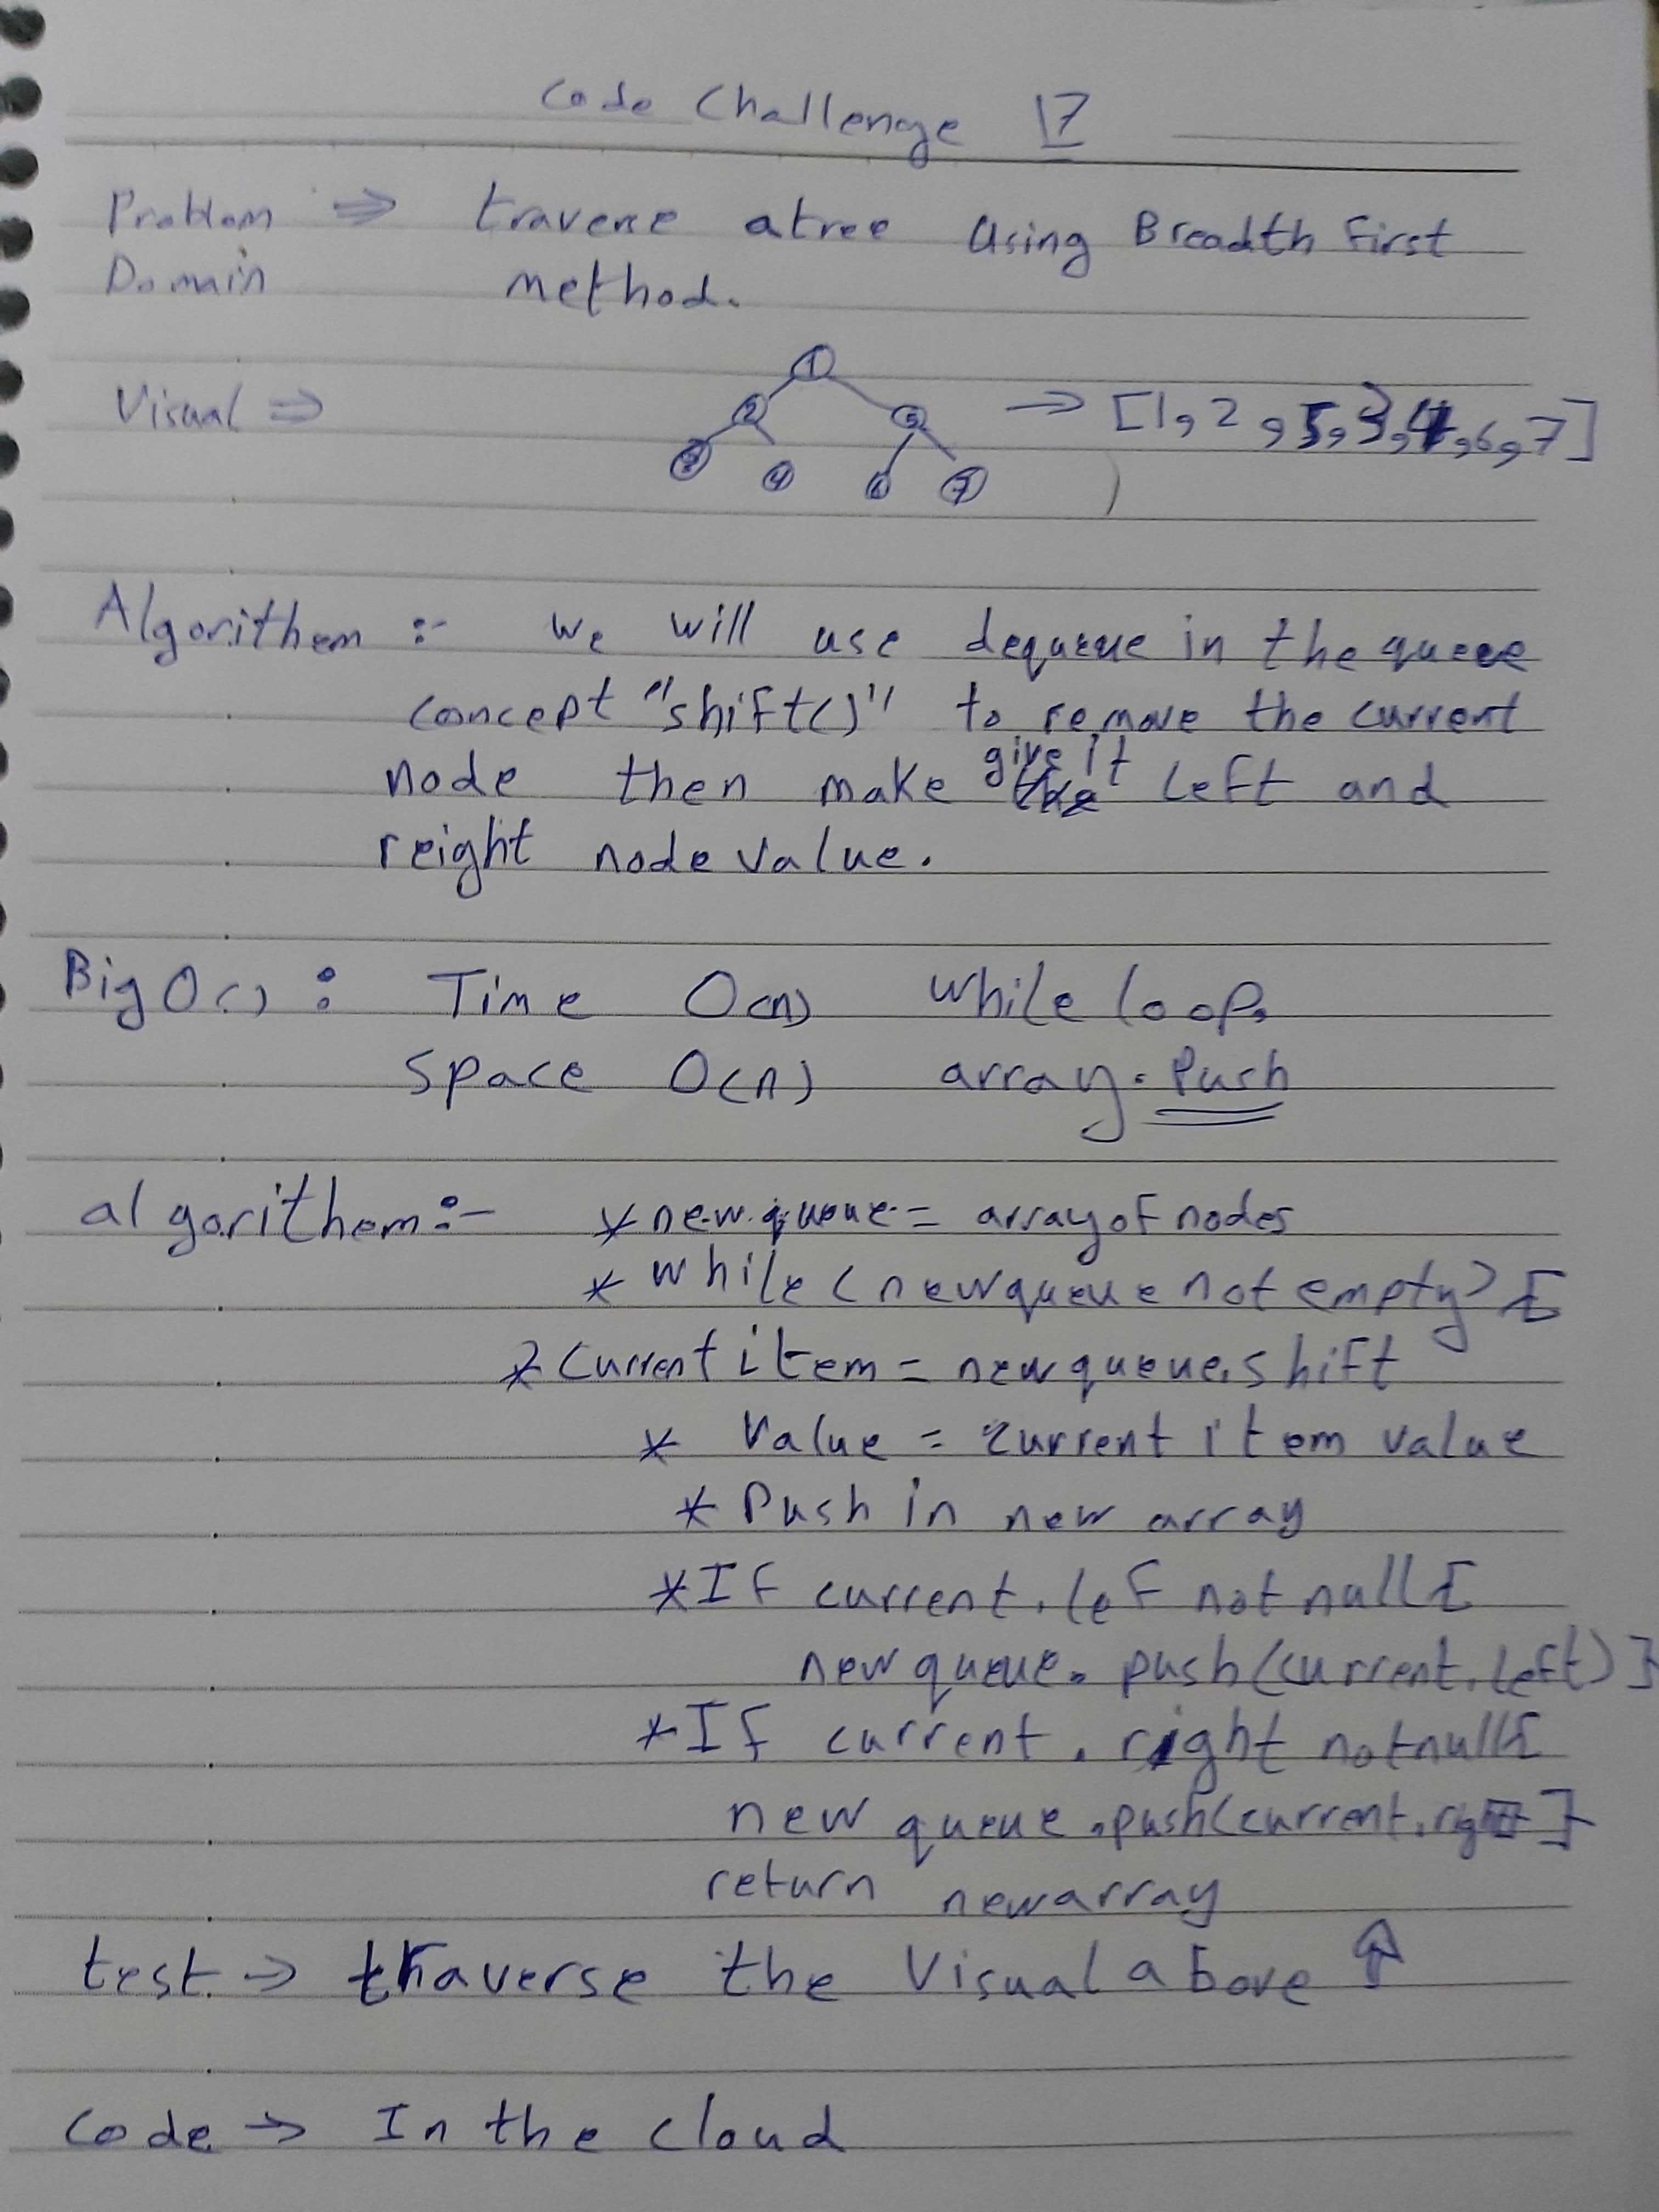 Code Challenge 17
Problem ⇒ traverse a tree using Breadth First
Domain method.
Visual ⇒ 1 → [1,2,5,3,4,6,7]
2 5
3 4 6 7
Algorithem :- we will use dequeue in the queue
concept "shift()" to remove the current
node then make give it left and
reight node value.
Big O() : Time O(n) while loop.
Space O(n) array.push
algorithem :- * new queue = array of nodes
* while (new queue not empty) {
* current item = new queue.shift
* Value = current item value
* Push in new array
* If current.lef not null {
new queue.push(current.left) }
* If current.right not null {
new queue.push(current.right }
return new array
test → traverse the Visual above ↑
code → In the cloud